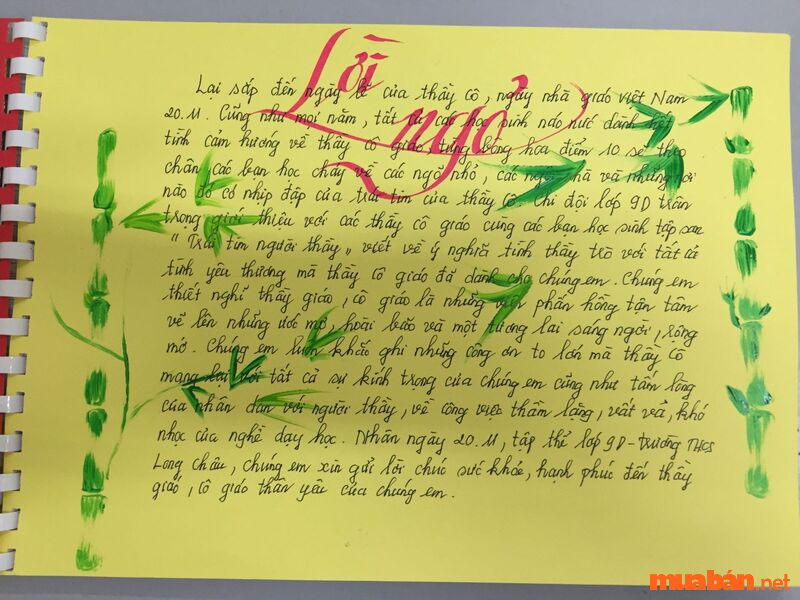 Lời ngỏ
Lại sắp đến ngày lễ của thầy cô, ngày nhà giáo việt Nam
20.11. Cũng như mọi năm, tất cả các học sinh nao nức dành hết
tình cảm hương về thầy cô giáo, từng bông hoa điểm 10 sẽ theo
chân các bạn học chạy về các ngõ nhỏ, các ngôi nhà và những nơi
nào đó có nhịp đập của trái tim của thầy cô. Chi đội lớp 9D trân
trọng giới thiệu với các thầy cô giáo cùng các bạn học sinh tập san
"Trái tim người thầy" viết về ý nghĩa tình thầy trò với tất cả
tình yêu thương mà thầy cô giáo đã dành cho chúng em. Chúng em
thiết nghĩ thầy giáo, cô giáo là những viên phấn hồng tận tâm
vẽ lên những ước mơ, hoài bão và một tương lai sáng ngời, rộng
mở. Chúng em luôn khắc ghi những công ơn to lớn mà thầy cô
mang lại với tất cả sự kính trọng của chúng em cũng như tấm lòng
của nhân dân với người thầy, về công việc thầm lặng, vất vả, khó
nhọc của nghề dạy học. Nhân ngày 20.11, tập thể lớp 9D-trương THCS
Long Châu, chúng em xin gửi lời chúc sức khỏe, hạnh phúc đến thầy
giáo, cô giáo thân yêu của chúng em.
muabán.net